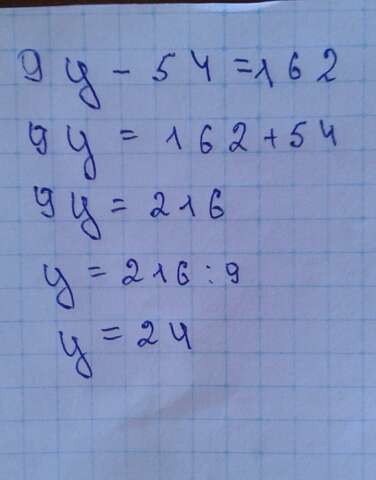 9y - 54 = 162
9y = 162 + 54
9y = 216
y = 216 : 9
y = 24